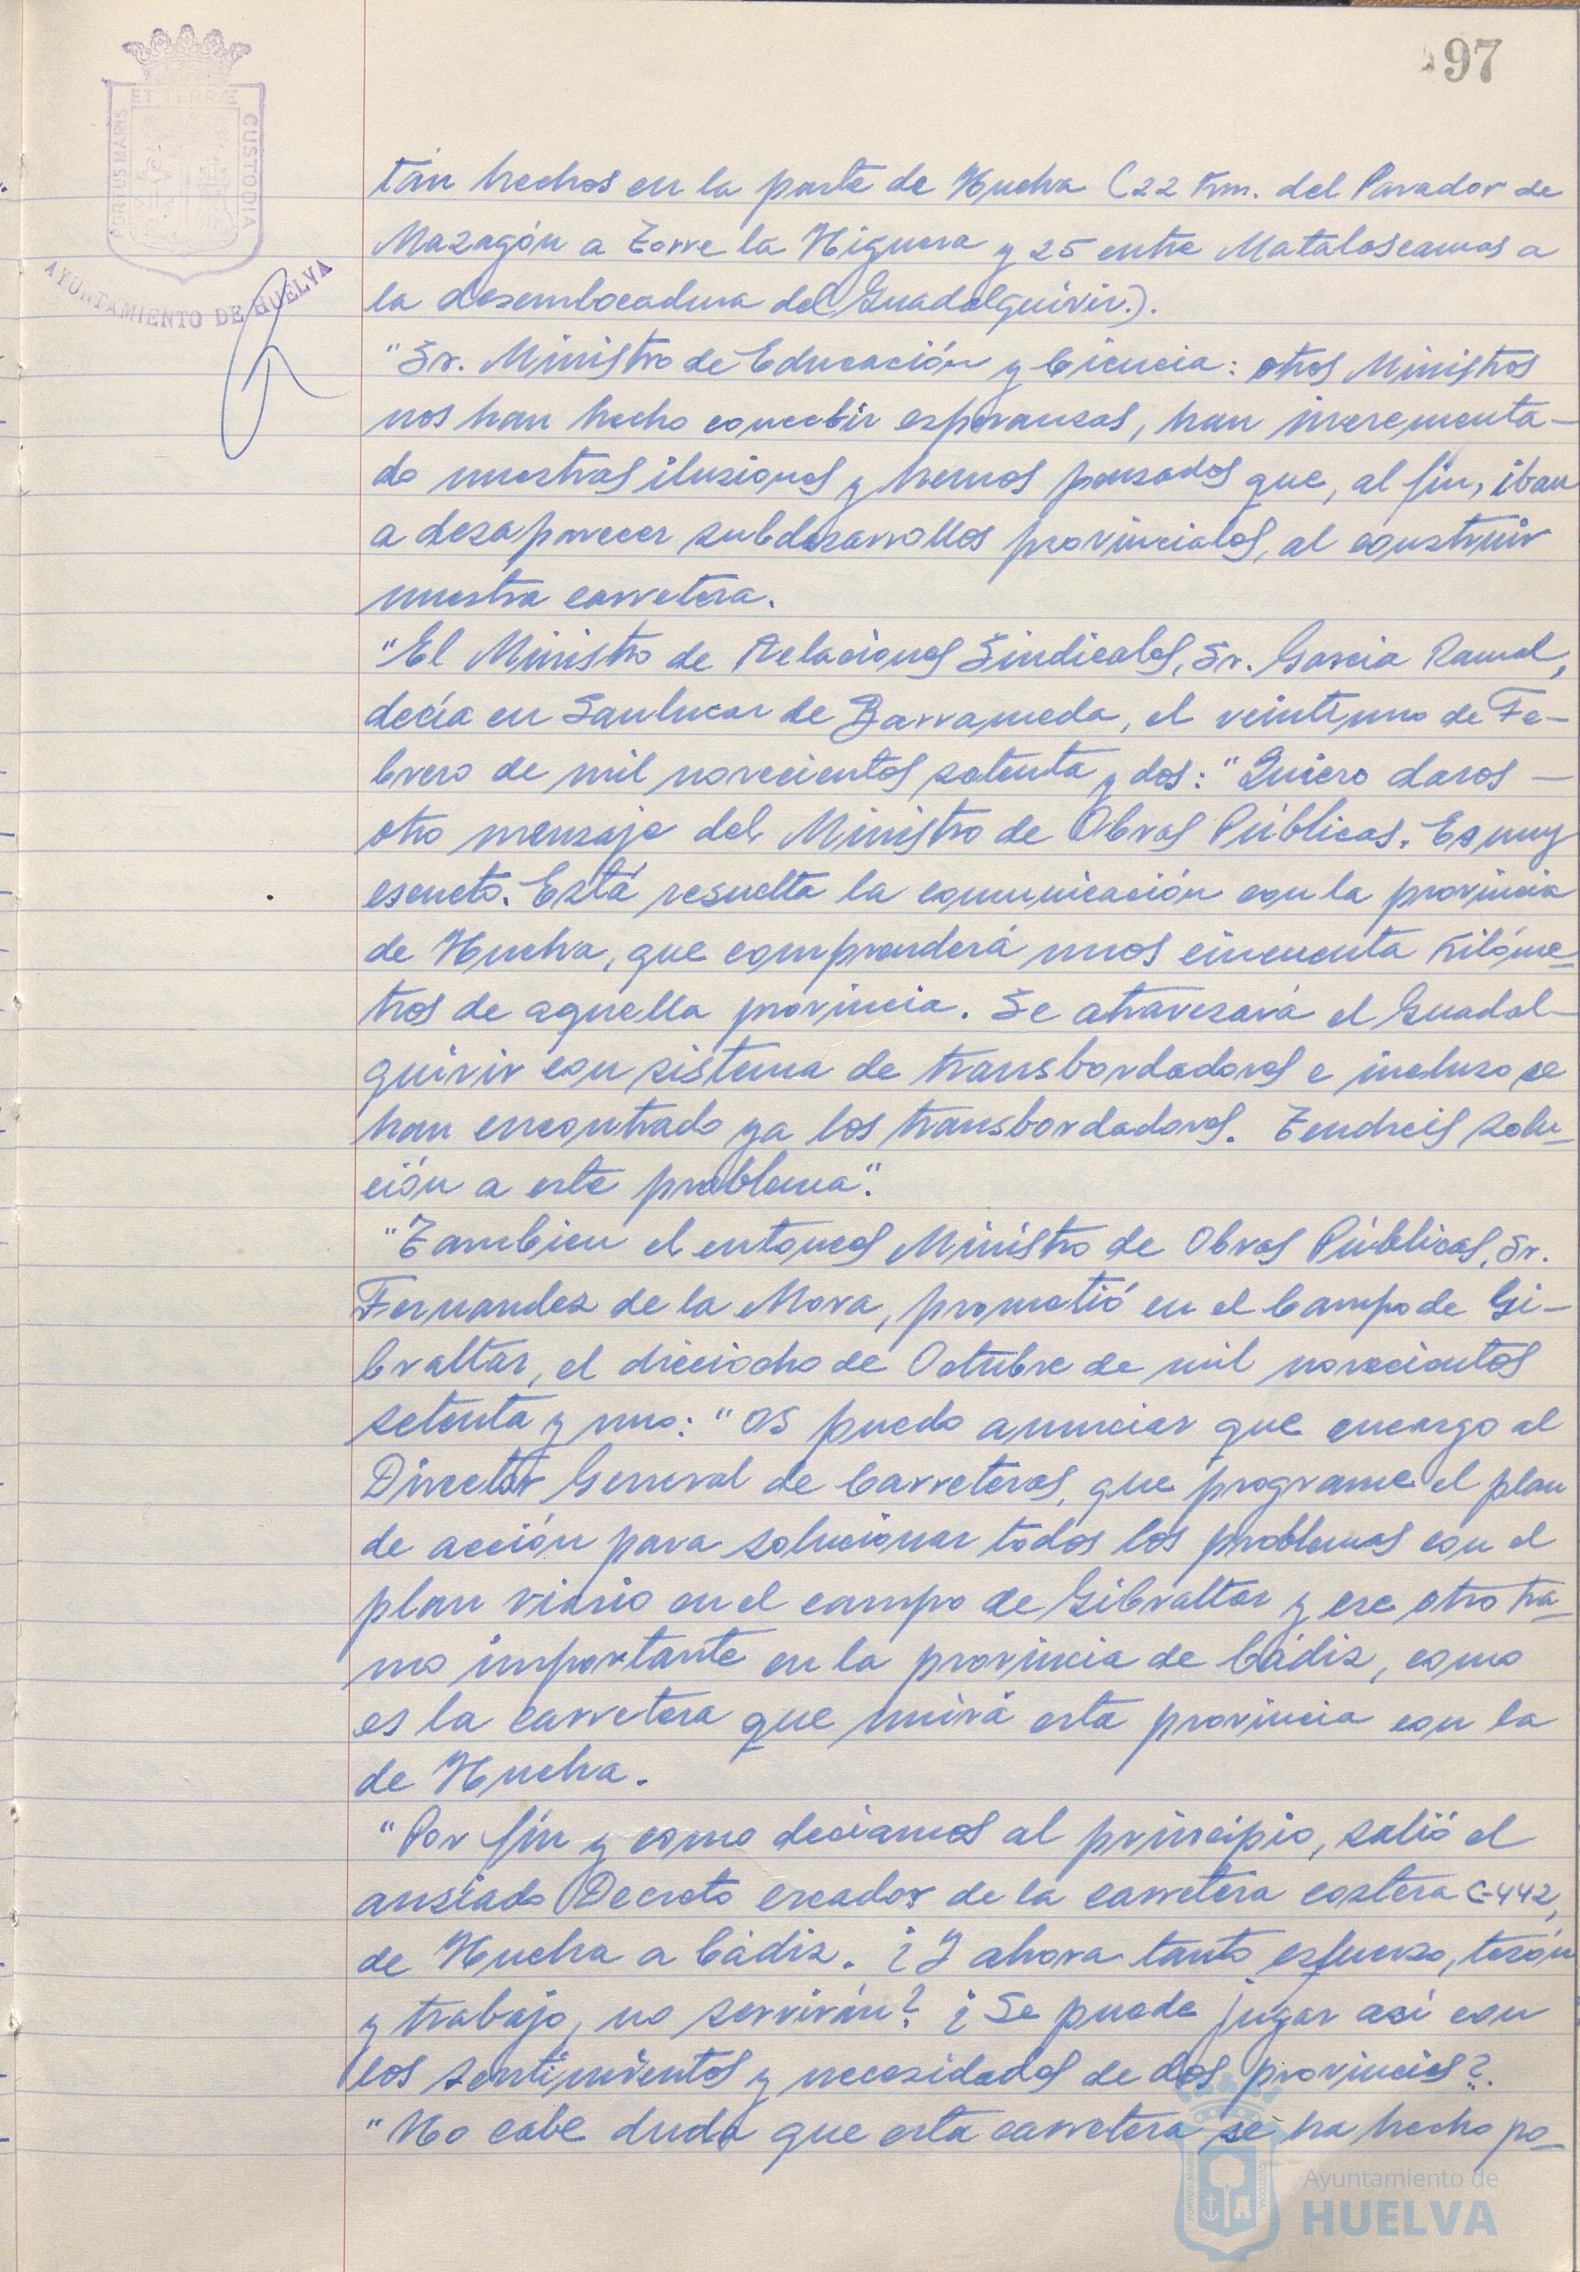 97
PORTUS MARIS ET TERRÆ CUSTODIA
AYUNTAMIENTO DE HUELVA
tán hechos en la parte de Huelva (22 Km. del Parador de
Mazagón a Torre la Higuera y 25 entre Matalascañas a
la desembocadura del Guadalquivir).
"Sr. Ministro de Educación y Ciencia: otros Ministros
nos han hecho concebir esperanzas, han incrementa-
do nuestras ilusiones y hemos pensados que, al fin, iban
a desaparecer subdesarrollos provinciales, al construir
nuestra carretera.
"El Ministro de Relaciones Sindicales, Sr. Garcia Ramal,
decía en Sanlucar de Barrameda, el veintiuno de Fe-
brero de mil novecientos setenta y dos: "Quiero daros -
otro mensaje del Ministro de Obras Públicas. Es muy
escueto. Está resuelta la comunicación con la provincia
de Huelva, que comprenderá unos cincuenta Kilóme-
tros de aquella provincia. Se atravesará el Guadal-
quivir con sistema de transbordadores e incluso se
han encontrado ya los transbordadores. Tendreis solu-
ción a este problema".
"Tambien el entonces Ministro de Obras Públicas, Sr.
Fernandez de la Mora, prometió en el Campo de Gi-
braltar, el dieciocho de Octubre de mil novecientos
setenta y uno: "Os puedo anunciar que encargo al
Director General de Carreteras, que programe el plan
de acción para solucionar todos los problemas con el
plan viario en el campo de Gibraltar y ese otro tra-
mo importante en la provincia de Cádiz, como
es la carretera que unirá esta provincia con la
de Huelva.
"Por fin y como deciamos al principio, salió el
ansiado Decreto creador de la carretera costera C-442,
de Huelva a Cádiz. ¿Y ahora tanto esfuerzo, tesón
y trabajo, no servirán? ¿Se puede jugar así con
los sentimientos y necesidades de dos provincias?.
"No cabe duda que esta carretera se ha hecho po-
Ayuntamiento de
HUELVA